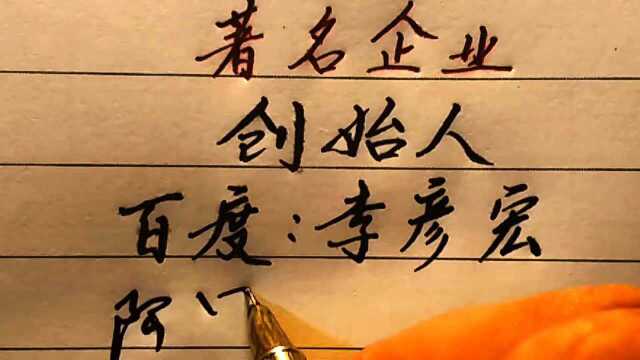 著名企业
创始人
百度:李彦宏
阿